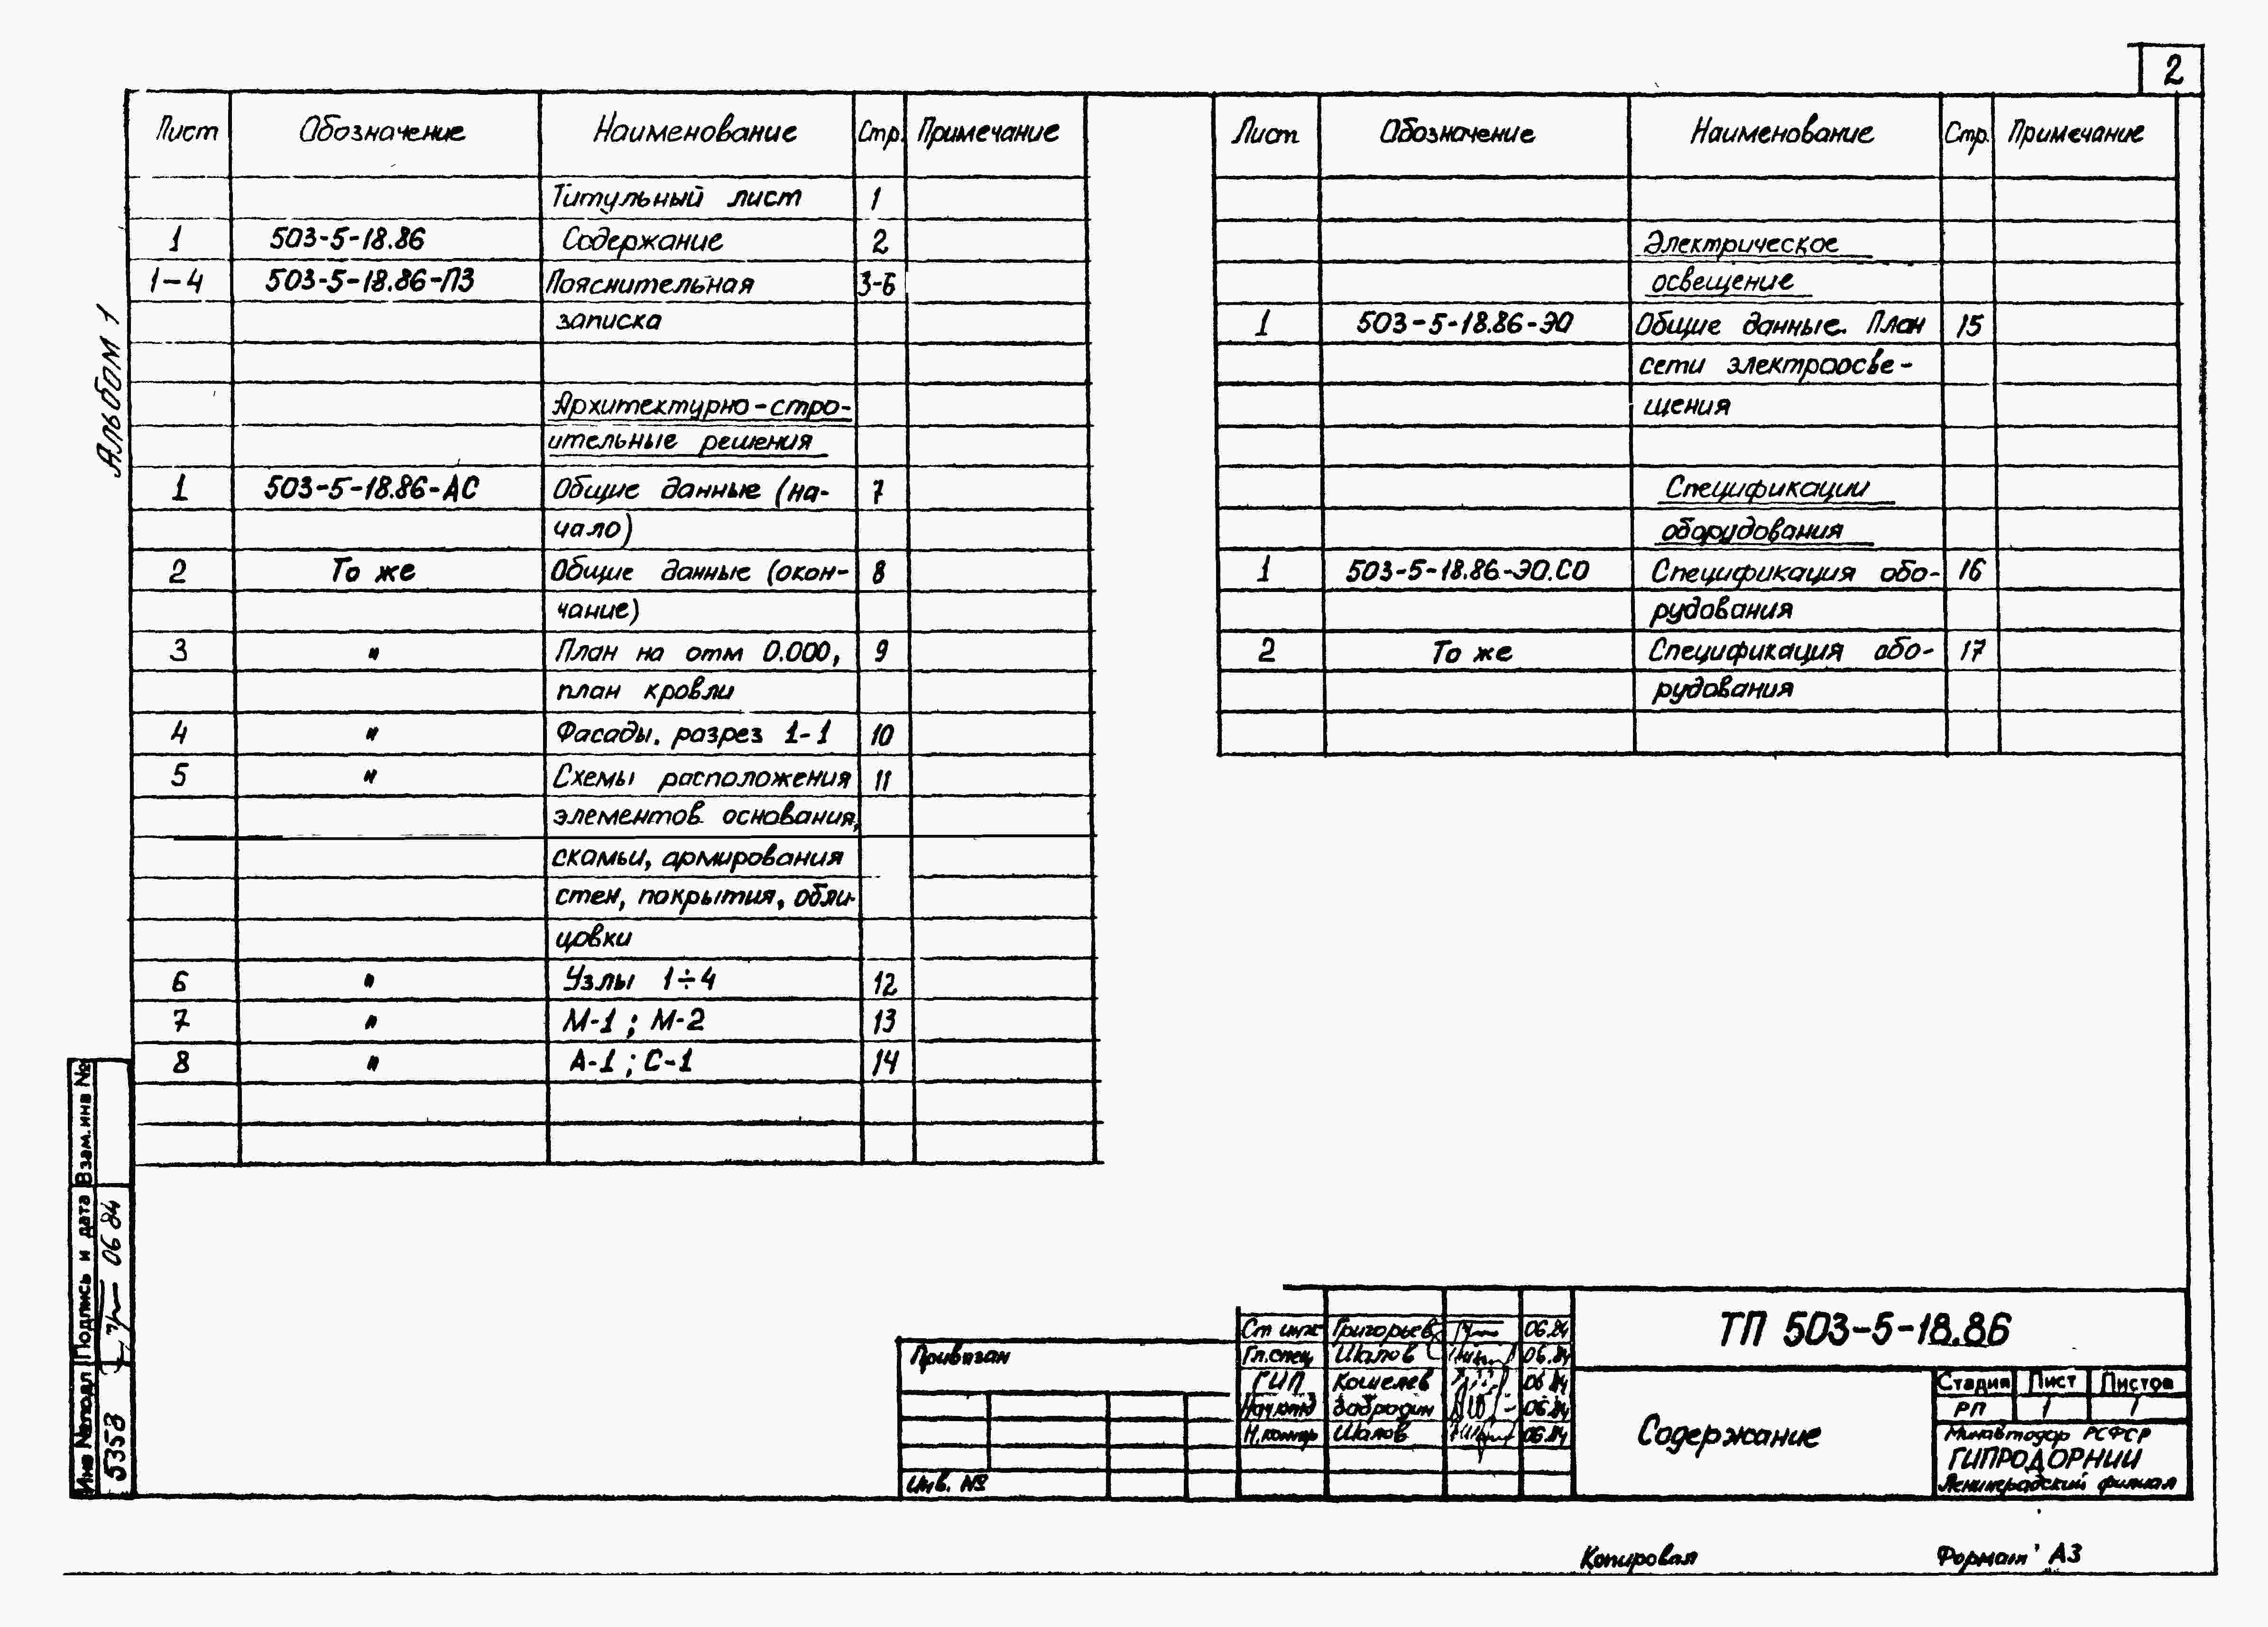 2
Альбом 1
Лист Обозначение Наименование Стр. Примечание
Титульный лист 1
1 503-5-18.86 Содержание 2
1-4 503-5-18.86-ПЗ Пояснительная 3-6
записка
Архитектурно-стро-
ительные решения
1 503-5-18.86-АС Общие данные (на- 7
чало)
2 То же Общие данные (окон- 8
чание)
3 " План на отм 0.000, 9
план кровли
4 " Фасады, разрез 1-1 10
5 " Схемы расположения 11
элементов основания,
скамьи, армирования
стен, покрытия, обли-
цовки
6 " Узлы 1÷4 12
7 " М-1; М-2 13
8 " А-1; С-1 14
Лист Обозначение Наименование Стр. Примечание
Электрическое
освещение
1 503-5-18.86-ЭО Общие данные. План 15
сети электроосве-
щения
Спецификации
оборудования
1 503-5-18.86-ЭО.СО Спецификация обо- 16
рудования
2 То же Спецификация обо- 17
рудования
Взам.инв №
Подпись и дата
06 84
Инв №подл
5358
Привязан
Инв. №
Ст инж Григорьев 06.84
Гл.спец Шалов 06.84
ГИП Кошелев 06 84
Нач отд Забродин 06.84
Н.контр Шалов 06.84
ТП 503-5-18.86
Содержание
Стадия Лист Листов
РП 1 1
Минавтодор РСФСР
ГИПРОДОРНИИ
Ленинградский филиал
Копировал
Формат А3